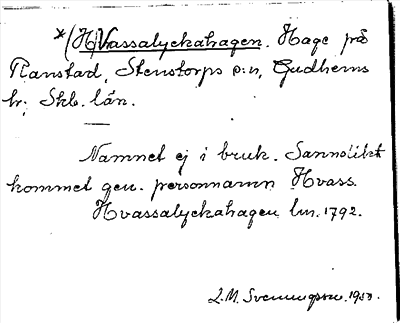 *(H)Vassalyckahagen. Hage på
Ranstad, Stenstorps s:n, Gudhems
hr; Skb. län.
Namnet ej i bruk. Sannolikt
kommet gen. personnamn Hvass.
Hvassalyckahagen lm. 1792.
L.M. Svenungsson. 1950.